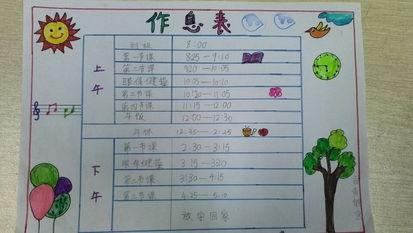 作息表
上午
到校 8:00
第一节课 8:25—9:10
第二节课 9:20—10:05
眼保健操 10:05—10:10
第三节课 10:20—11:05
第四节课 11:15—12:00
午饭 12:00—12:30
午休 12:35—2:25
下午
第一节课 2:30—3:15
眼保健操 3:15—3:20
第二节课 3:30—4:15
第三节课 4:25—5:10
放学回家